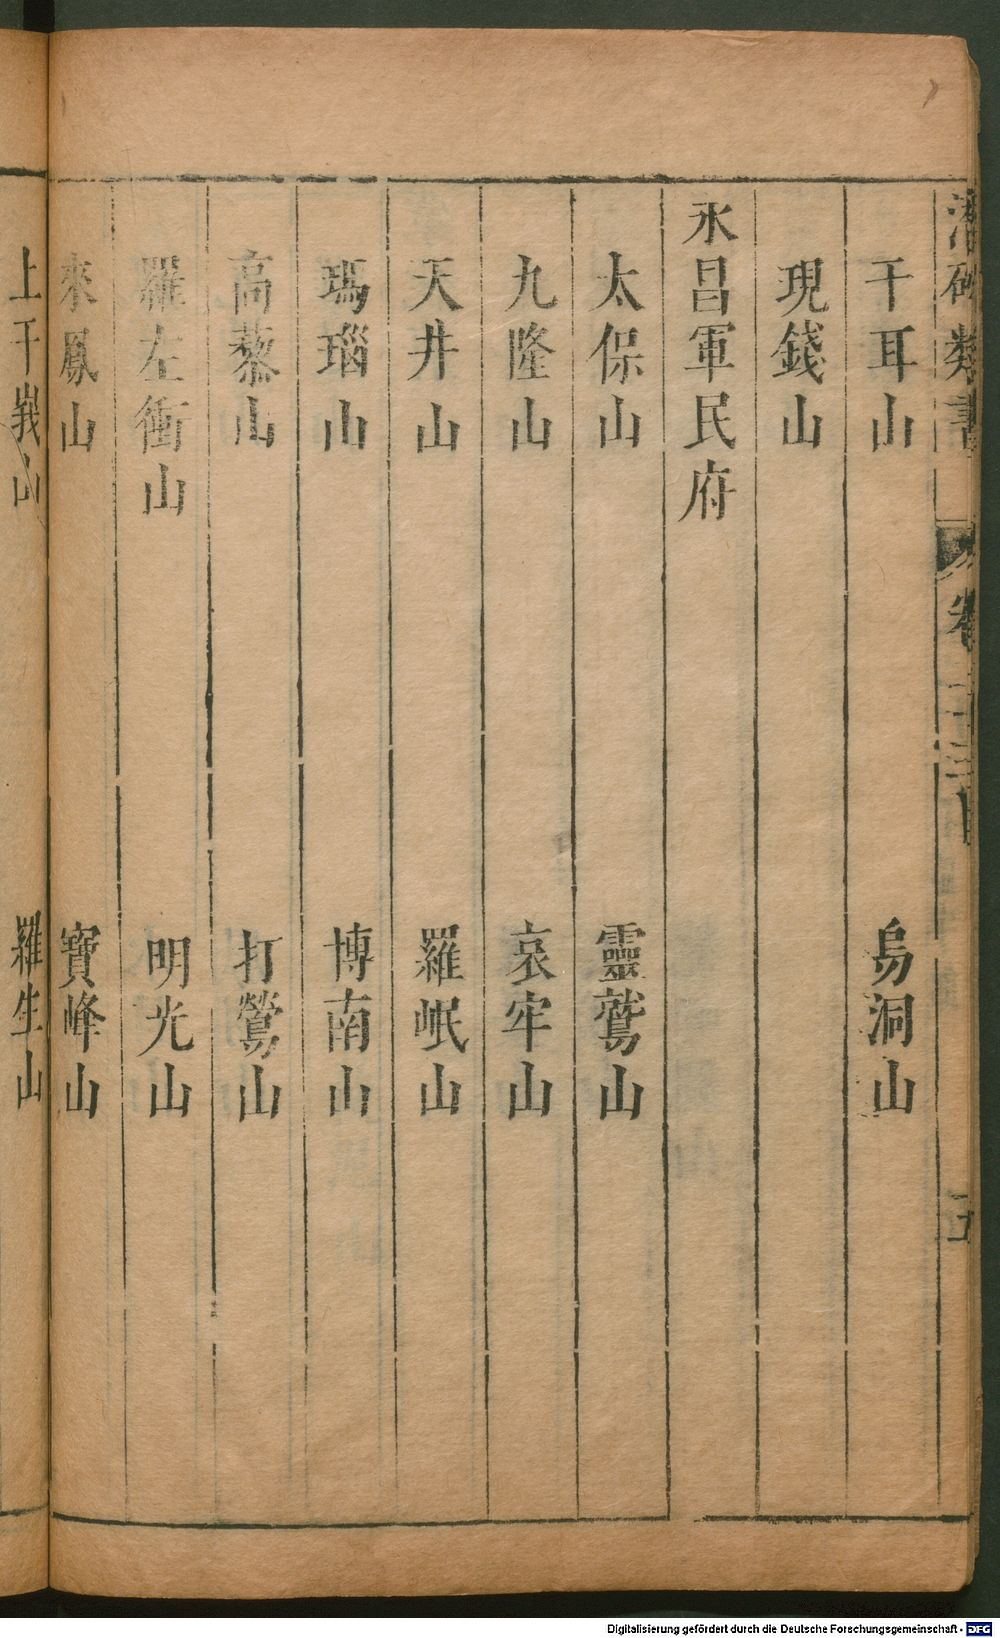 潛確類書 卷二十三目 五
干耳山 易洞山
現錢山
永昌軍民府
太保山 靈鷲山
九隆山 哀牢山
天井山 羅岷山
瑪瑙山 博南山
高藜山 打鶯山
羅左衝山 明光山
來鳳山 寶峰山
上干峩山 羅生山
Digitalisierung gefördert durch die Deutsche Forschungsgemeinschaft - DFG